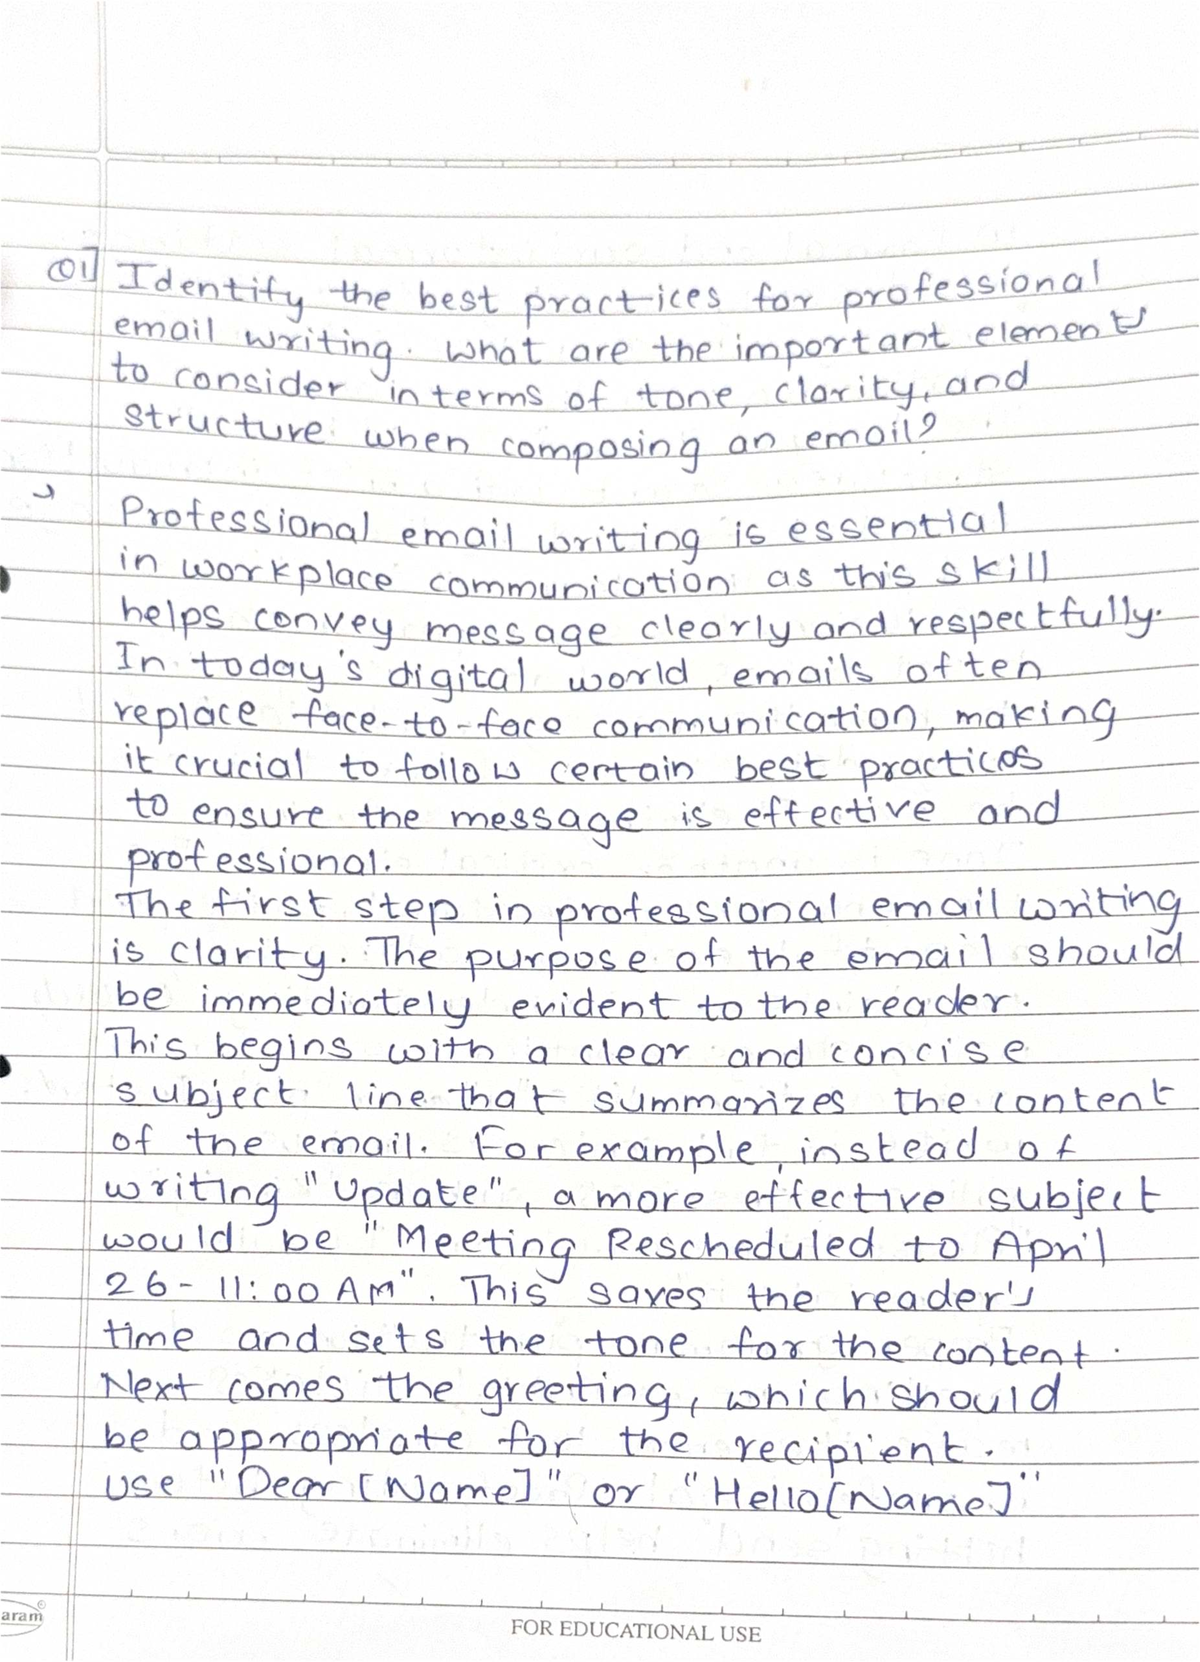 Q1] Identify the best practices for professional
email writing. What are the important elements
to consider in terms of tone, clarity, and
structure when composing an email?
Professional email writing is essential
in workplace communication as this skill
helps convey message clearly and respectfully.
In today's digital world, emails often
replace face-to-face communication, making
it crucial to follow certain best practices
to ensure the message is effective and
professional.
The first step in professional email writing
is clarity. The purpose of the email should
be immediately evident to the reader.
This begins with a clear and concise
subject line that summarizes the content
of the email. For example, instead of
writing "Update", a more effective subject
would be "Meeting Rescheduled to April
26 - 11:00 AM". This saves the reader's
time and sets the tone for the content.
Next comes the greeting, which should
be appropriate for the recipient.
Use "Dear [Name]" or "Hello [Name]"
aram
FOR EDUCATIONAL USE